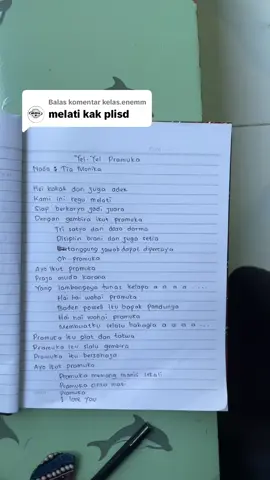 Balas komentar kelas.enemm
melati kak plisd
Yel-Yel Pramuka
Nada : Tia Monika
Hei kakak dan juga adek
Kami ini regu melati
Siap berkarya jadi juara
Dengan gembira ikut pramuka
Tri satya dan dasa darma
Disiplin brani dan juga setia
Bertanggung jawab dapat dipercaya
Oh pramuka
Ayo ikut pramuka
Praja muda karana
Yang lambangnya tunas kelapa a a a a ....
Hai hai wahai pramuka
Baden powel itu bapak pandunya
Hai hai wahai pramuka
Membuatku selalu bahagia a a a a ....
Pramuka itu
Pramuka itu slalu gembira
Pramuka itu bersahaja
Ayo ikut pramuka
Pramuka memang manis sekali
Pramuka cinta
Pramuka
I love you